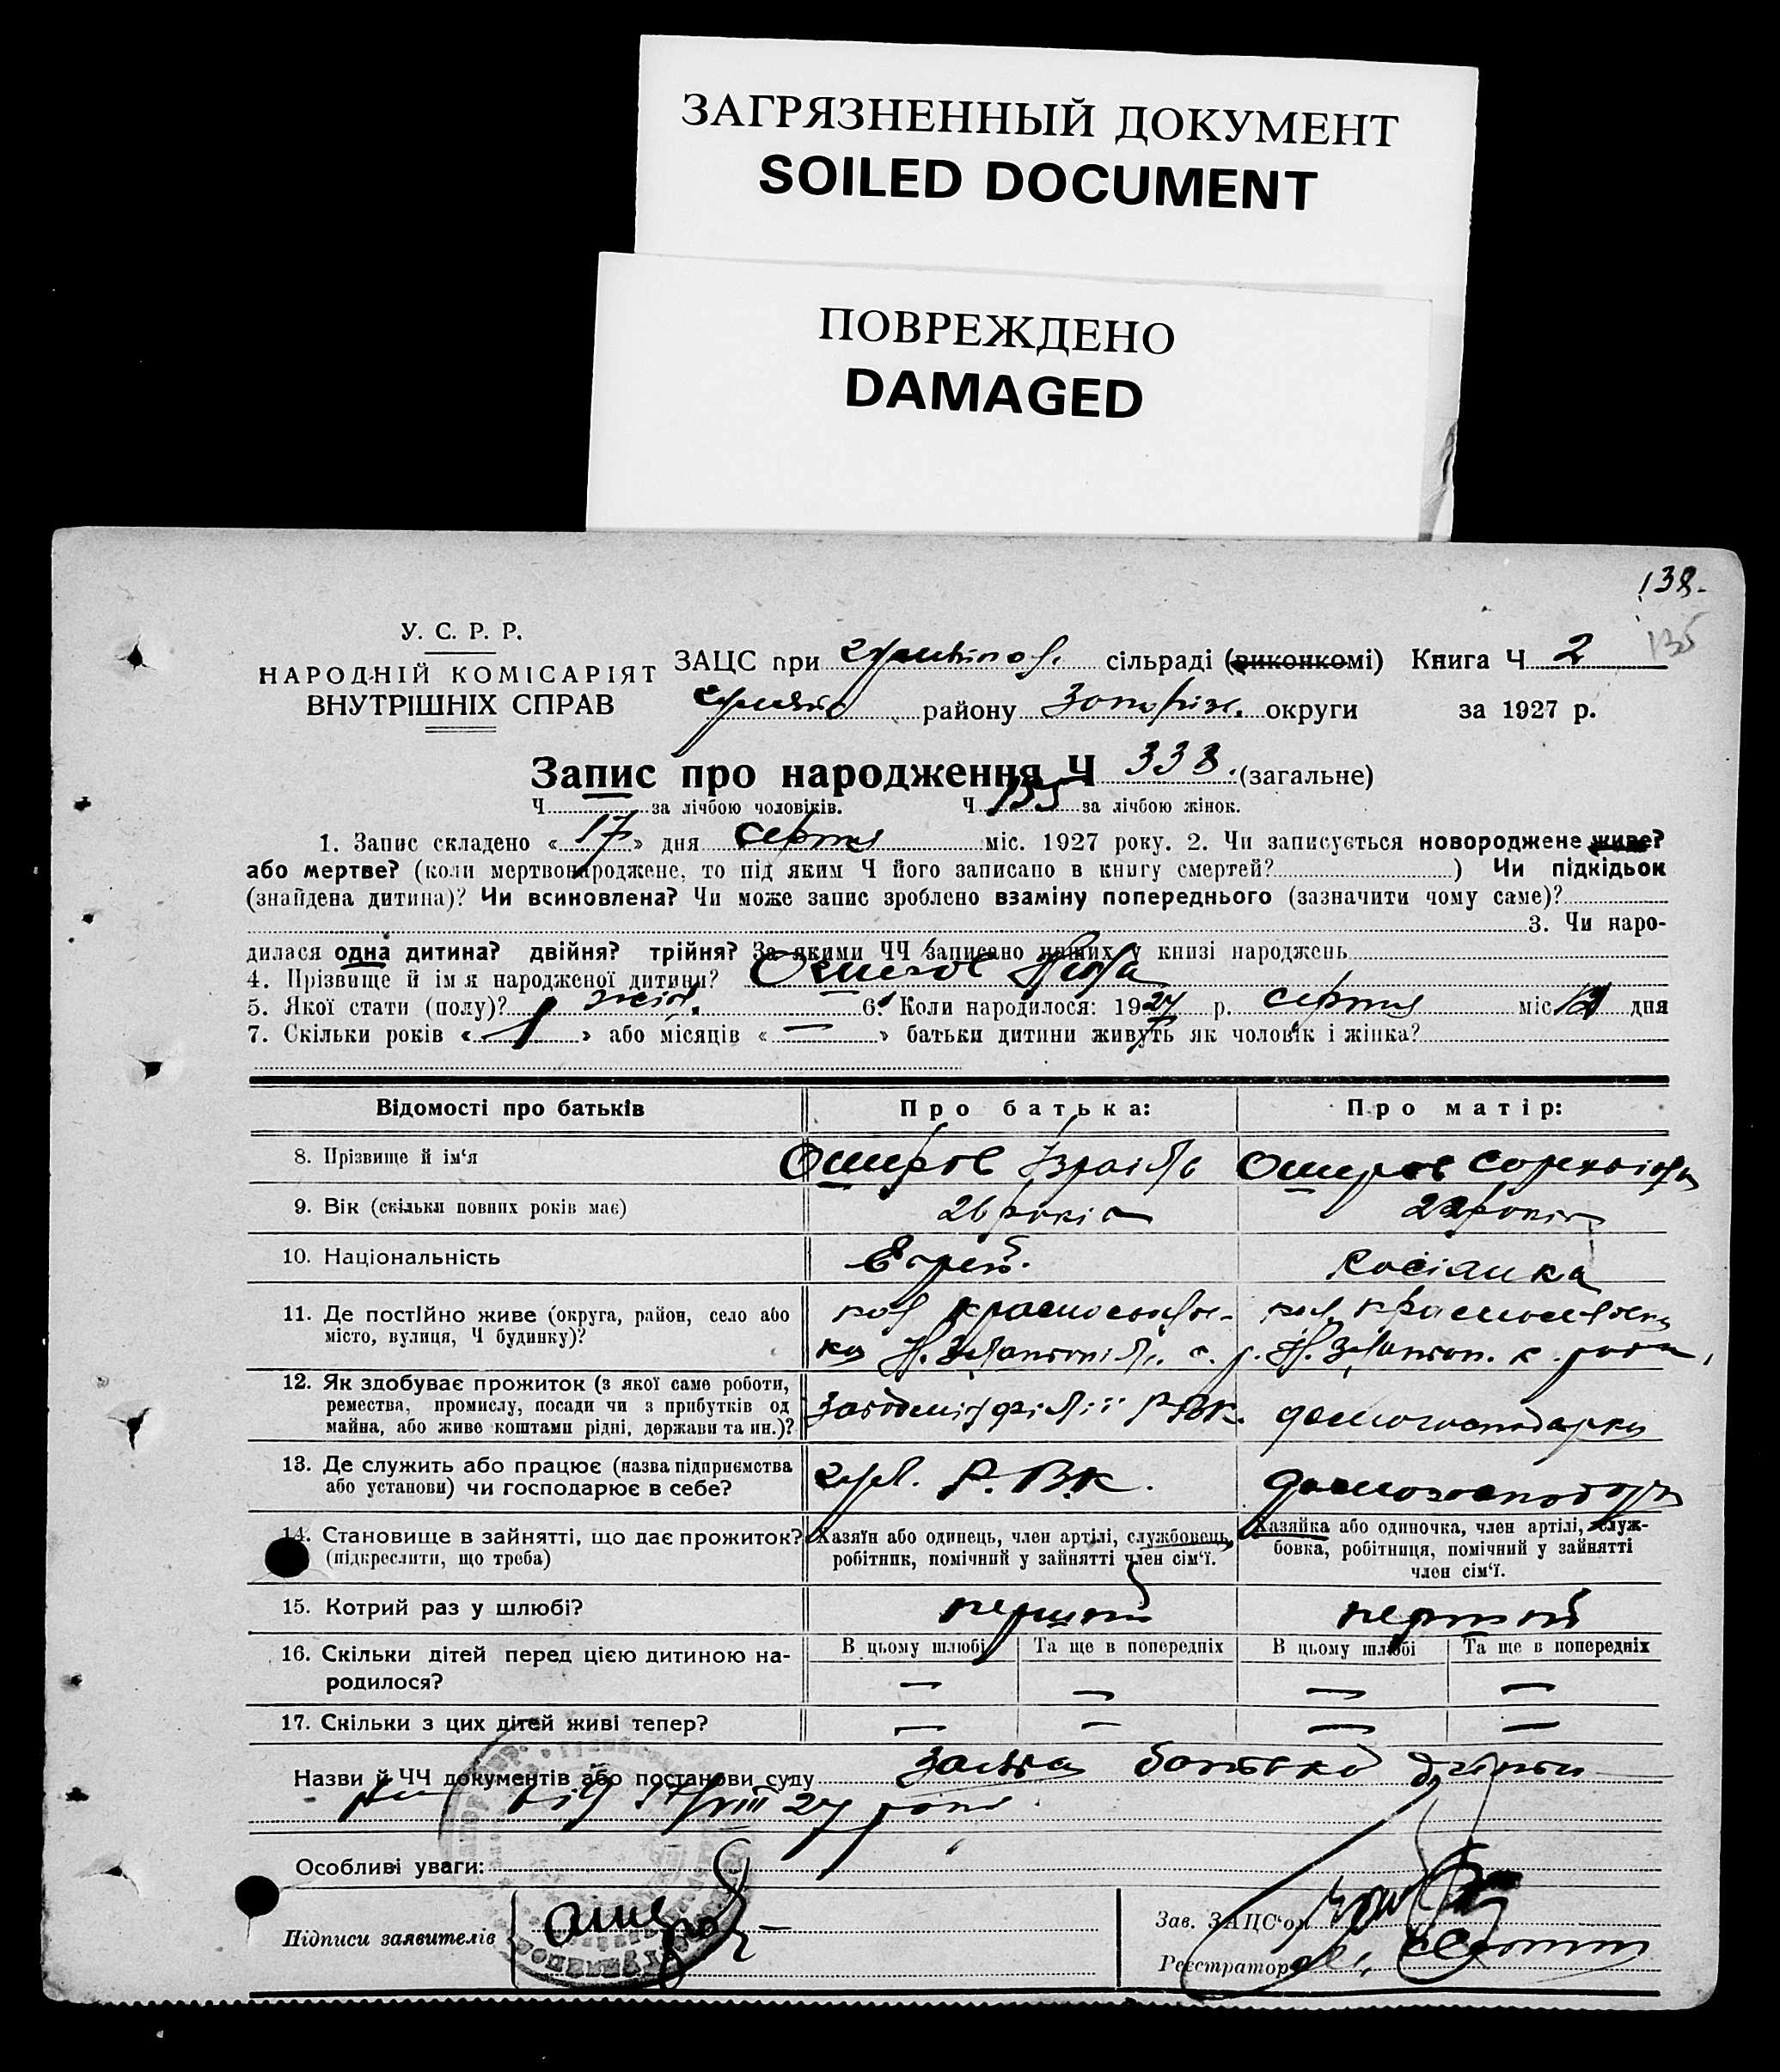 ЗАГРЯЗНЕННЫЙ ДОКУМЕНТ
SOILED DOCUMENT
ПОВРЕЖДЕНО
DAMAGED
138.
135
У. С. Р. Р.
НАРОДНІЙ КОМІСАРІЯТ
ВНУТРІШНІХ СПРАВ
ЗАЦС при сільраді (виконкомі) Книга Ч 2
району округи за 1927 р.
Запис про народження Ч 338. (загальне)
Ч за лічбою чоловіків. Ч 155 за лічбою жінок.
1. Запис складено « 17 » дня серпня міс. 1927 року. 2. Чи записується новороджене живе?
або мертве? (коли мертвонароджене, то під яким Ч його записано в книгу смертей? ) Чи підкідьок
(знайдена дитина)? Чи всиновлена? Чи може запис зроблено взаміну попереднього (зазначити чому саме)?
3. Чи наро-
дилася одна дитина? двійня? трійня? За якими ЧЧ записано інших у книзі народжень
4. Прізвище й ім'я народженої дитини?
5. Якої стати (полу)? жін. 6. Коли народилося: 1927 р. серпня міс дня
7. Скільки років « 1 » або місяців « — » батьки дитини живуть як чоловік і жінка?
Відомості про батьків
Про батька:
Про матір:
8. Прізвище й ім'я
Ошеров Ізраїль
Ошеров
9. Вік (скільки повних років має)
26 років
22 років
10. Національність
Еврей.
Росіянка
11. Де постійно живе (округа, район, село або
місто, вулиця, Ч будинку)?
12. Як здобуває прожиток (з якої саме роботи,
ремества, промислу, посади чи з прибутків од
майна, або живе коштами рідні, держави та ин.)?
РВК.
домогосподарка
13. Де служить або працює (назва підприємства
або установи) чи господарює в себе?
Р.В.К.
домогосподарка
14. Становище в зайнятті, що дає прожиток?
(підкреслити, що треба)
Хазяїн або одинець, член артілі, службовець,
робітник, помічний у зайнятті член сім'ї.
Хазяйка або одиночка, член артілі, служ-
бовка, робітниця, помічний у зайнятті
член сім'ї.
15. Котрий раз у шлюбі?
перший
перший
16. Скільки дітей перед цією дитиною на-
родилося?
В цьому шлюбі
Та ще в попередніх
В цьому шлюбі
Та ще в попередніх
— — — —
17. Скільки з цих дітей живі тепер?
— — — —
Назви й ЧЧ документів або постанови суду заява батька дитини
від 17/VIII 27 року.
Особливі уваги:
Підписи заявителів
Зав. ЗАЦС'ом
Реєстратор